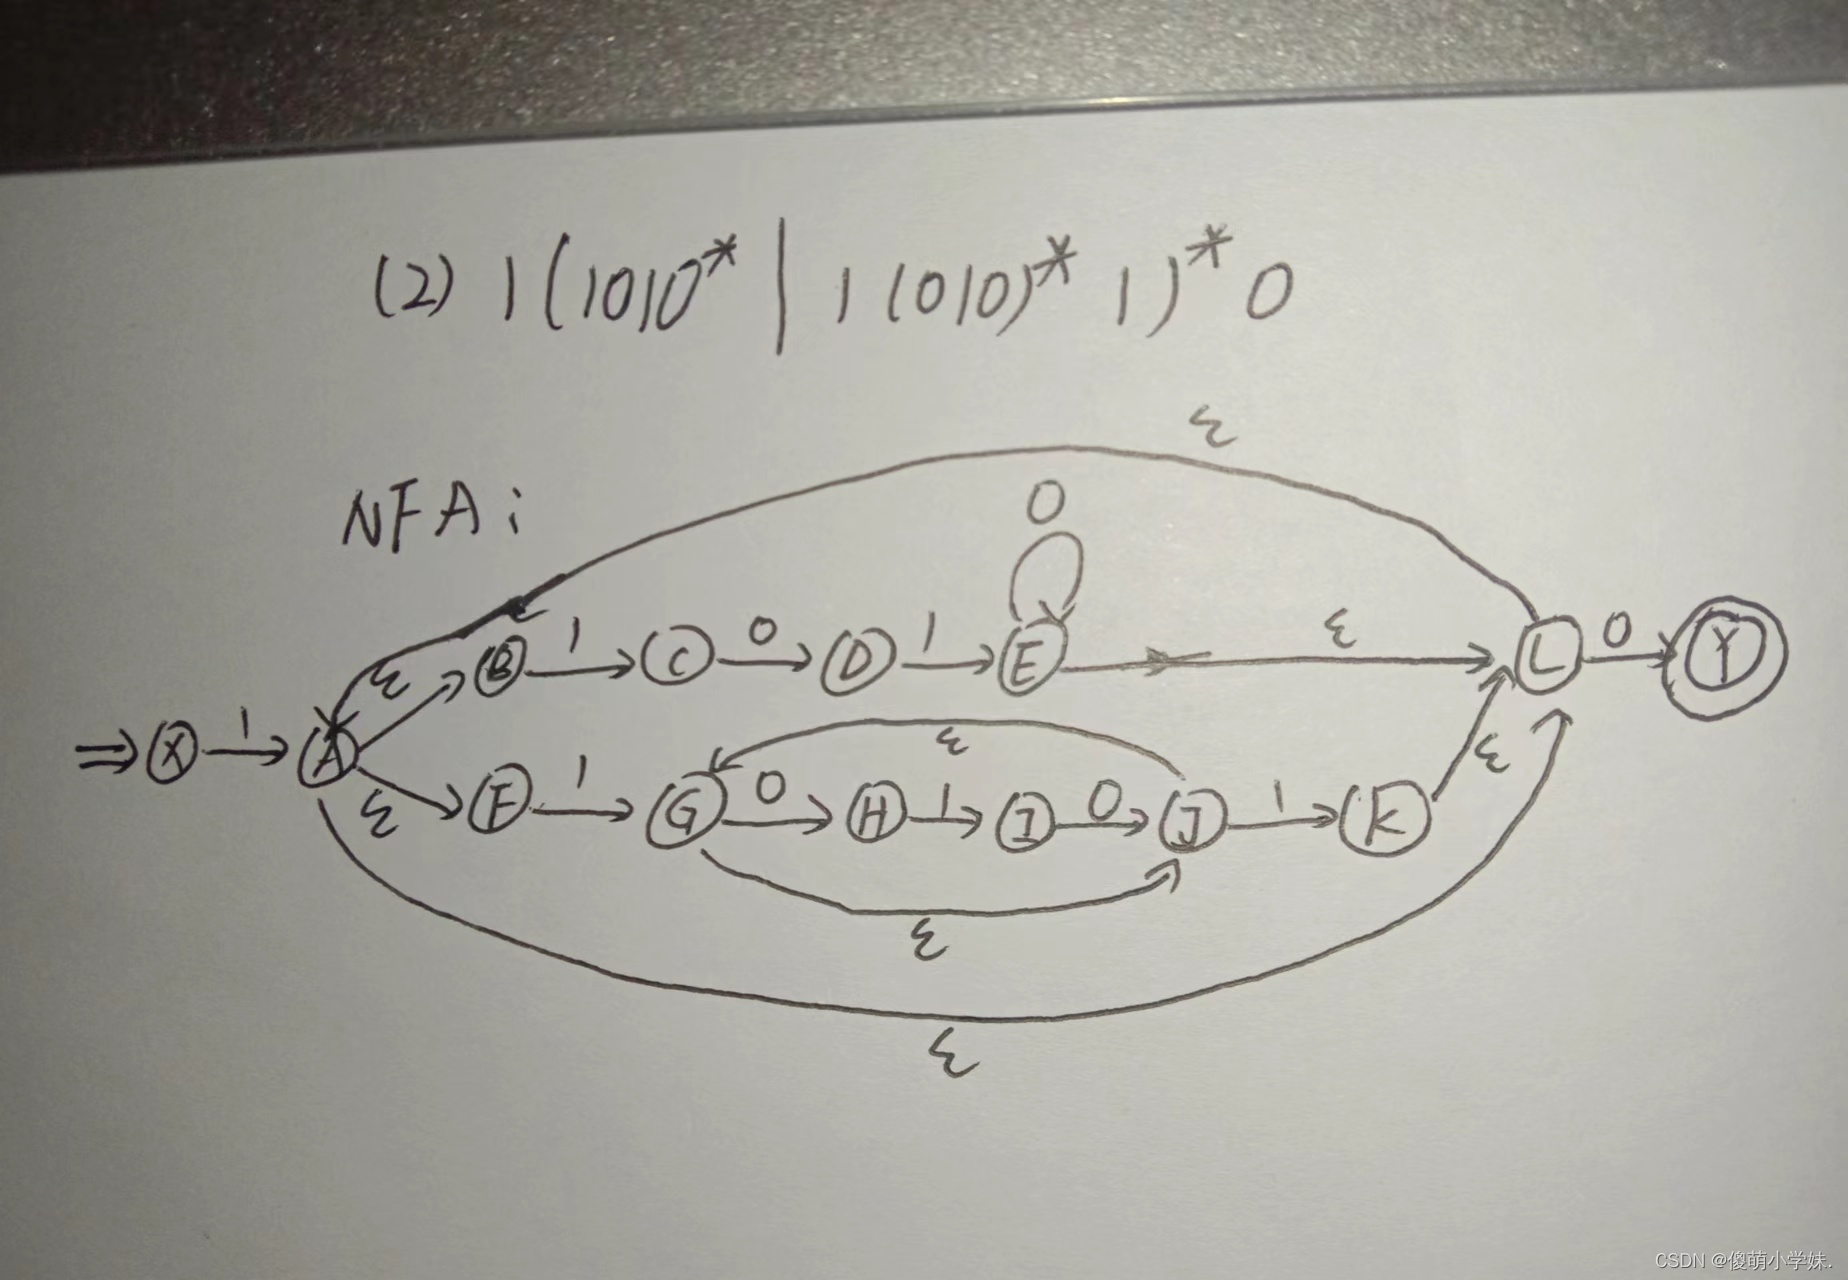 (2) 1(1010*|1(010)*1)*0
NFA:
ε
0
ε 1 0 1 ε 0
B C D E L Y
1 ε
X A
ε 1 0 1 0 1 ε
F G H I J K
ε
ε
CSDN @傻萌小学妹.